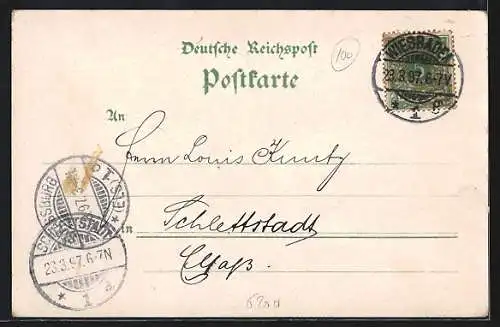 Deutsche Reichspost
Postkarte
100
WIESBADEN
23.3.97.6-7N.
* 1 g
An
Herrn Louis Kuntz
in Schlettstadt
Elsaß.
(ELS.) 1
SCHLETTSTADT
23.3.97.6-7N
* 1 a